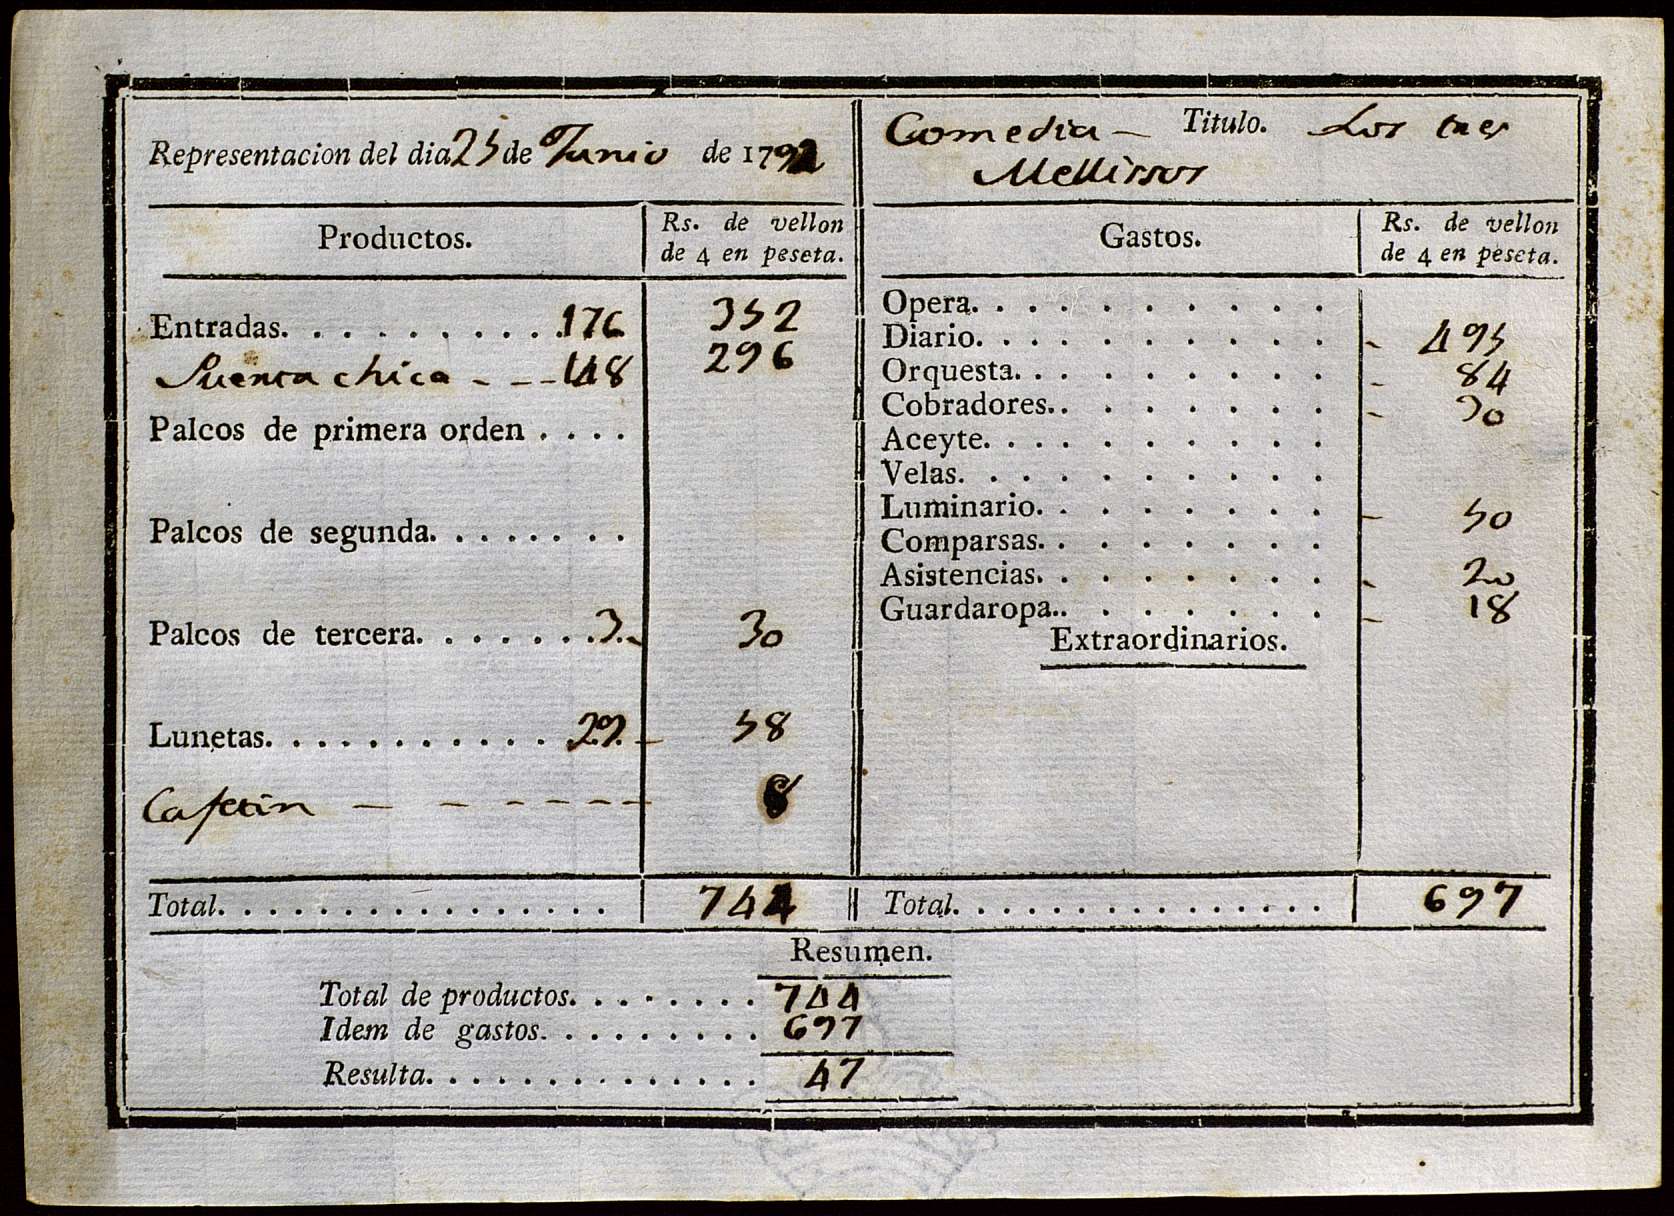 Representacion del dia 25 de Junio de 1792
Comedia - Titulo. Los tres
Mellissos
Productos. Rs. de vellon
de 4 en peseta.
Entradas. . . . . . . . . . 176 352
Puerta chica - - - 148 296
Palcos de primera orden . . . .
Palcos de segunda. . . . . . . .
Palcos de tercera. . . . . . . 3. - 30
Lunetas. . . . . . . . . . . . 29. - 58
Cafetin - - - - - - - 8
Total. . . . . . . . . . . . . . . . 744
Gastos. Rs. de vellon
de 4 en peseta.
Opera. . . . . . . . . .
Diario. . . . . . . . . . - 495
Orquesta. . . . . . . . . - 84
Cobradores. . . . . . . . - 30
Aceyte. . . . . . . . . .
Velas. . . . . . . . . .
Luminario. . . . . . . . - 50
Comparsas. . . . . . . .
Asistencias. . . . . . . . - 20
Guardaropa. . . . . . . . - 18
Extraordinarios.
Total. . . . . . . . . . . . . . . . 697
Resumen.
Total de productos. . . . . . . . 744
Idem de gastos. . . . . . . . . 697
Resulta. . . . . . . . . . . . . . 47